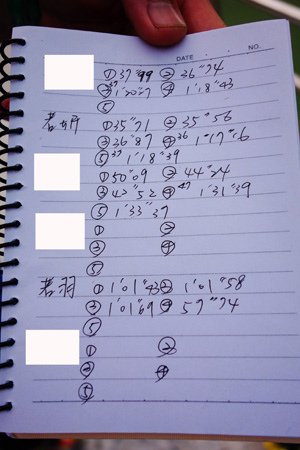 DATE NO.
①37"99 ②36"74
③1'20"7 ④1'18"43
⑤
①35"71 ②35"56
③36"87 ④1'17"16
⑤1'18"39
①50"09 ②44"24
③42"52 ④1'31"39
⑤1'33"37
① ②
③ ④
⑤
若羽 ①1'01"43 ②1'01"58
③1'01"69 ④57"74
⑤
① ②
③ ④
⑤